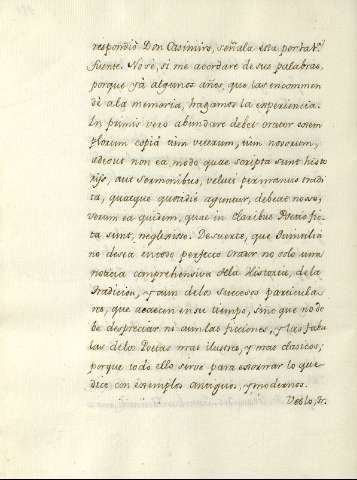 respondiò Don Casimiro, señala esta por tal
fuente. No sè, si me acordare de sus palabras,
porque yà algunos años, que las encommen
dè a la memoria, hagamos la experiencia.
In primis vero abundare debet orator exem
plorum copiâ cùm veterum, tùm novorum,
adeout non ea modo quae scripta sunt histo
rijs, aut sermonibus, veluti per manus tradi
ta, quaeque quotidiè aguntur, debeat nosse;
verùm ea quidem, quae in claribus Poetis fic
ta sunt, neglexisse. De suerte, que Quintilia
no desea en todo perfecto Orador no solo una
noticia comprehensiva de la Historia, de la
tradicion, y aun de los sucesos particula
res, que acaecen en su tiempo, sino que no de
be despreciar ni aun las ficciones, y las fabu
las de los Poetas mas ilustres, y mas clasicos;
porque todo ello sirve para exornar lo que
dice con exemplos antiguos, y modernos.